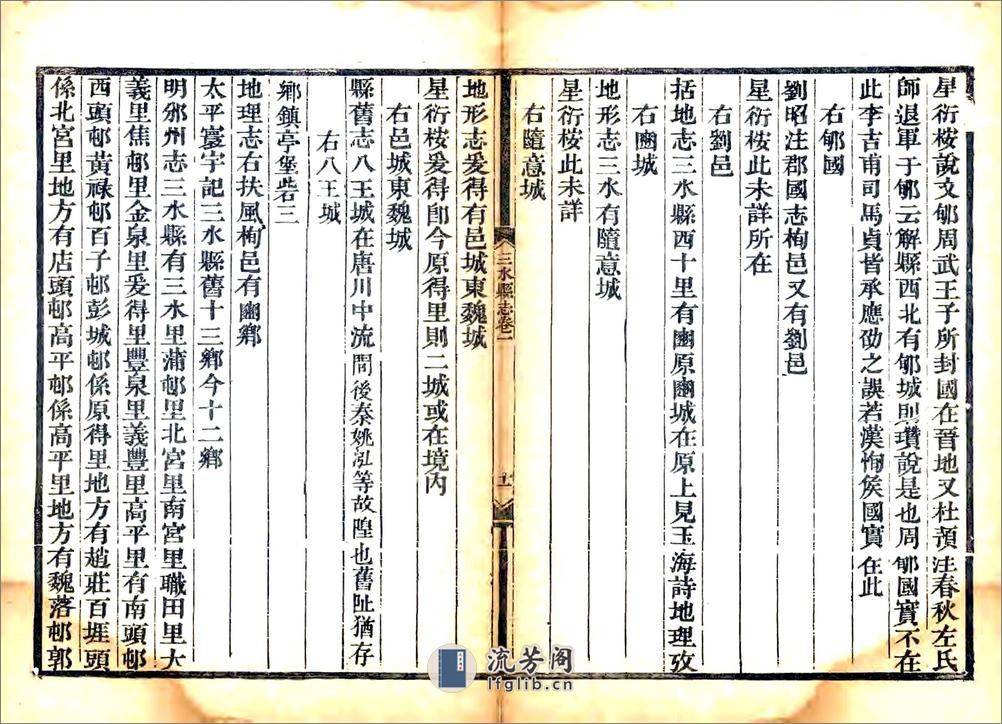 星衍桉說文郇周武王子所封國在晉地又杜預注春秋左氏
師退軍于郇云解縣西北有郇城則瓚說是也周郇國實不在
此李吉甫司馬貞皆承應劭之誤若漢栒矦國實在此
右郇國
劉昭注郡國志栒邑又有劉邑
星衍桉此未詳所在
右劉邑
括地志三水縣西十里有豳原豳城在原上見玉海詩地理攷
右豳城
地形志三水有隨意城
星衍桉此未詳
右隨意城
三水縣志卷二
十一
地形志爰得有邑城東魏城
星衍桉爰得卽今原得里則二城或在境內
右邑城東魏城
縣舊志八王城在唐川中流間後秦姚泓等故隍也舊趾猶存
右八王城
鄉鎮亭堡砦三
地理志右扶風栒邑有豳鄉
太平寰宇記三水縣舊十三鄉今十二鄉
明邠州志三水縣有三水里蒲邨里北宮里南宮里職田里大
義里焦邨里金泉里爰得里豐泉里義豐里高平里有南頭邨
西頭邨黃祿邨百子邨彭城邨係原得里地方有趙莊百堐頭
係北宮里地方有店頭邨高平邨係高平里地方有魏落邨郭
流芳阁
lfglib.cn